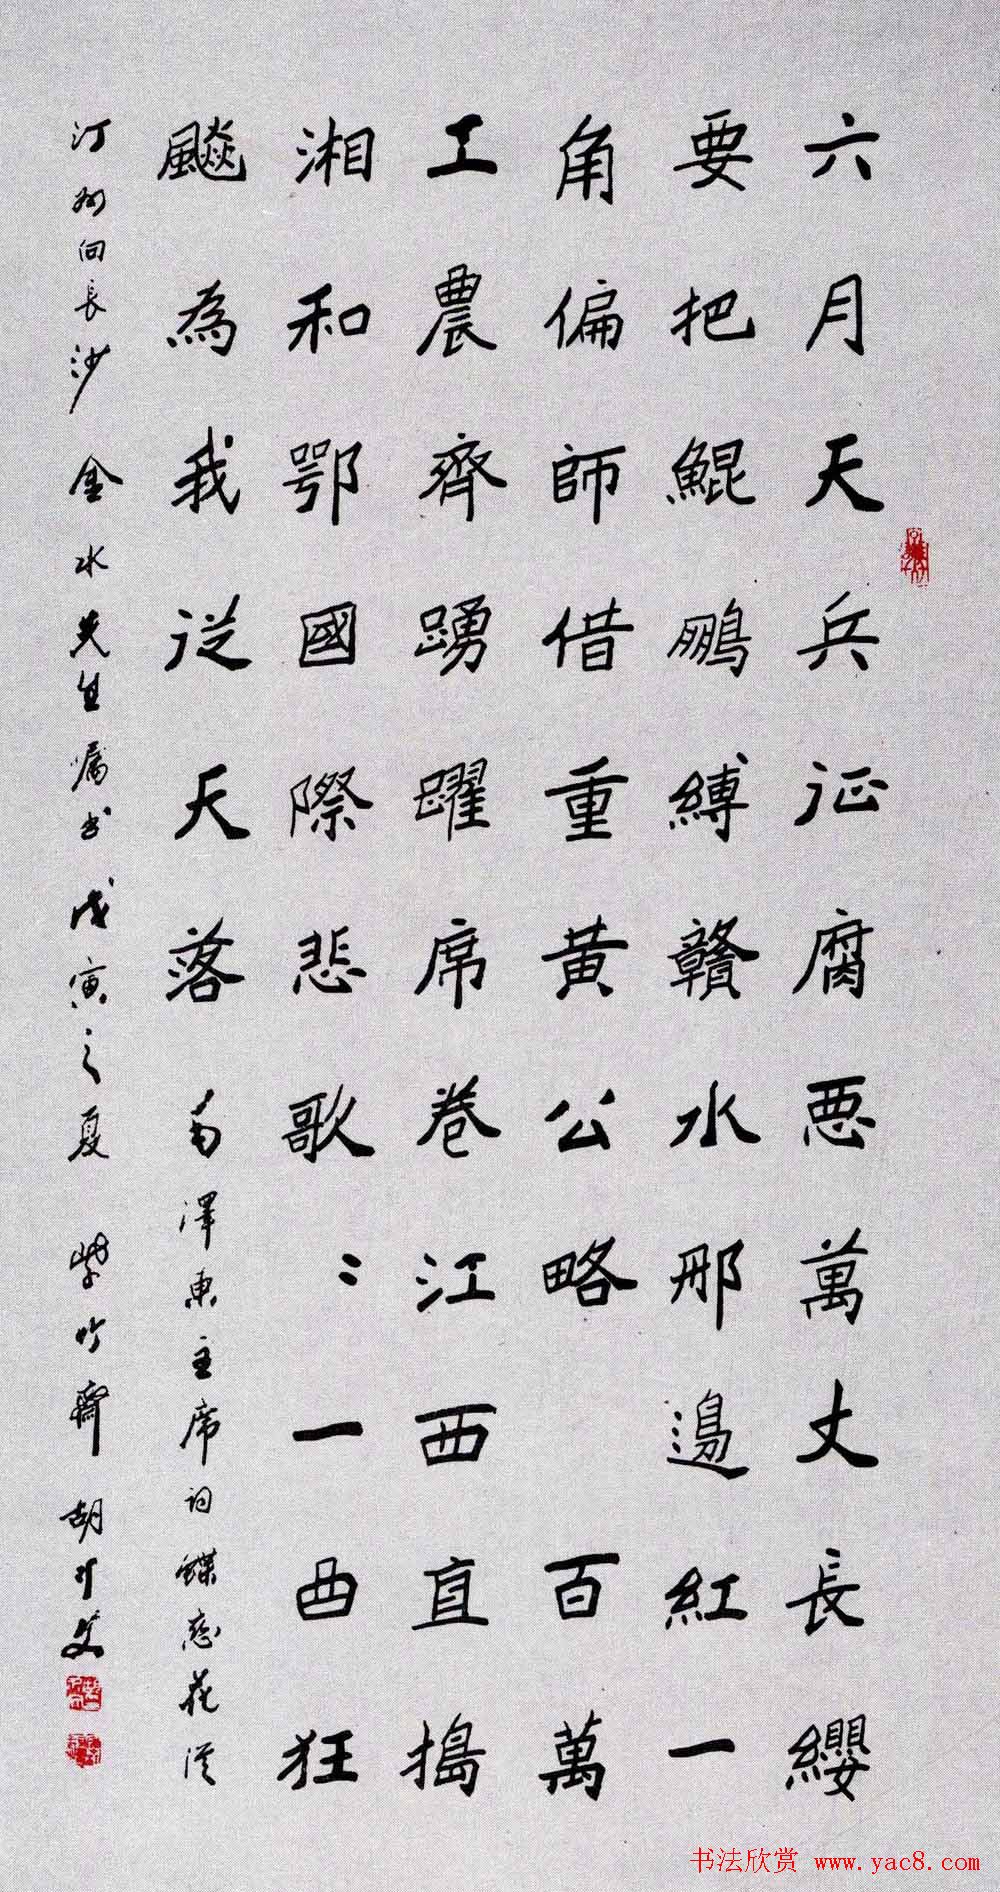 六月天兵征腐悪萬丈長纓
要把鯤鵬縛贛水那邊紅一
角偏師借重黃公略百萬
工農齊踴躍席卷江西直搗
湘和鄂國際悲歌〻一曲狂
飈為我從天落 毛澤東主席詞蝶戀花從
汀州向長沙 金水先生属书 戊寅之夏 紫竹齋 胡
书法欣赏 www.yac8.com